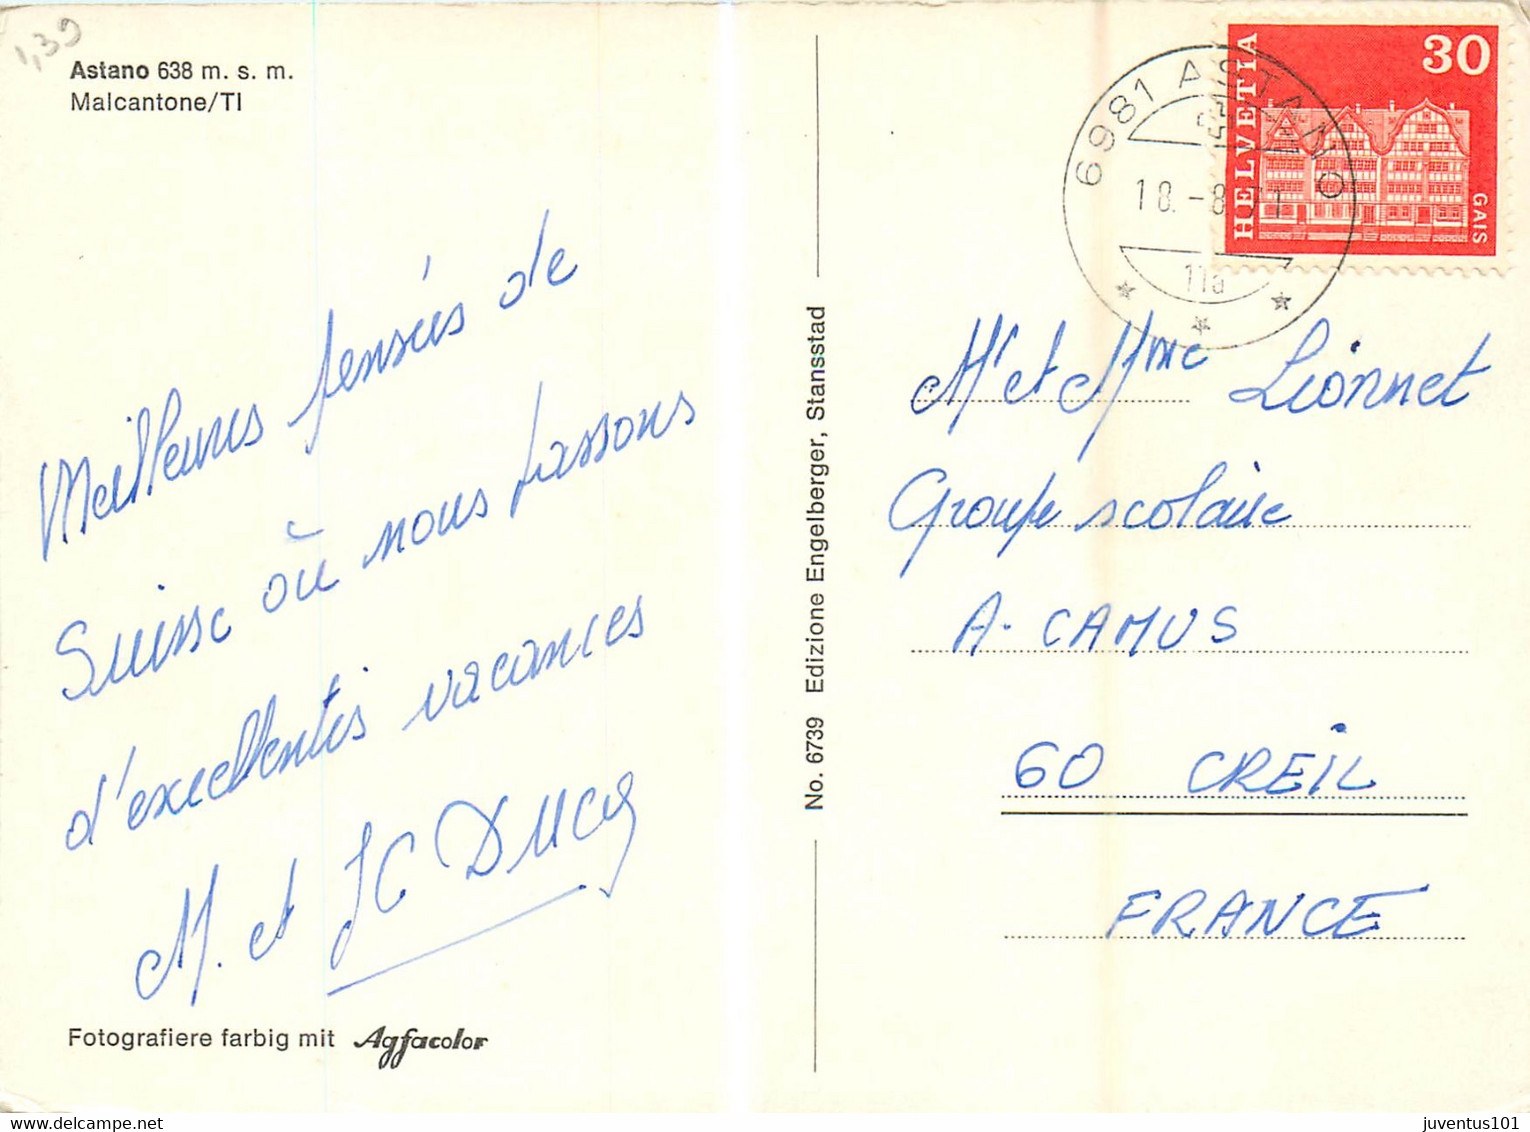 1,39
Astano 638 m. s. m.
Malcantone/TI
Meilleures pensées de
Suisse où nous passons
d'excellentes vacances
M. et JC
Fotografiere farbig mit Agfacolor
No. 6739 Edizione Engelberger, Stansstad
6981 ASTANO
18.-8.71
11a
HELVETIA
30
GAIS
Mr et Mme Lionnet
Groupe scolaire
A. CAMUS
60 CREIL
FRANCE
juventus101